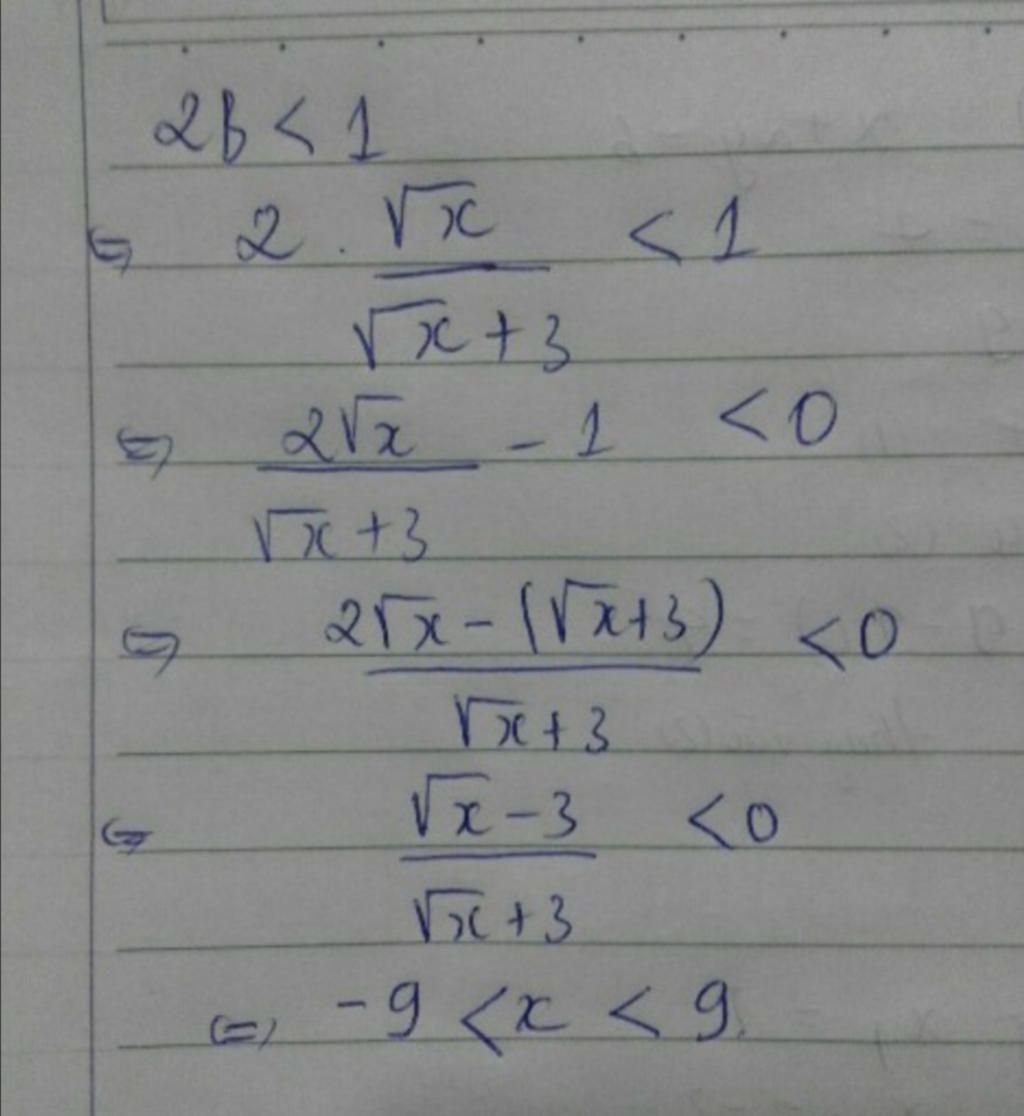 2B < 1
⇔ 2 . √x / (√x + 3) < 1
⇔ 2√x / (√x + 3) - 1 < 0
⇔ (2√x - (√x + 3)) / (√x + 3) < 0
⇔ (√x - 3) / (√x + 3) < 0
⇔ -9 < x < 9.